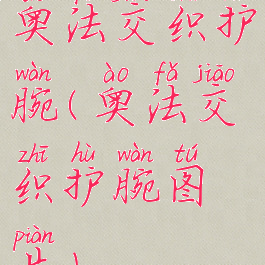 奥法交织护
wàn ào fǎ jiāo
腕(奥法交
zhī hù wàn tú
织护腕图
piàn
片)